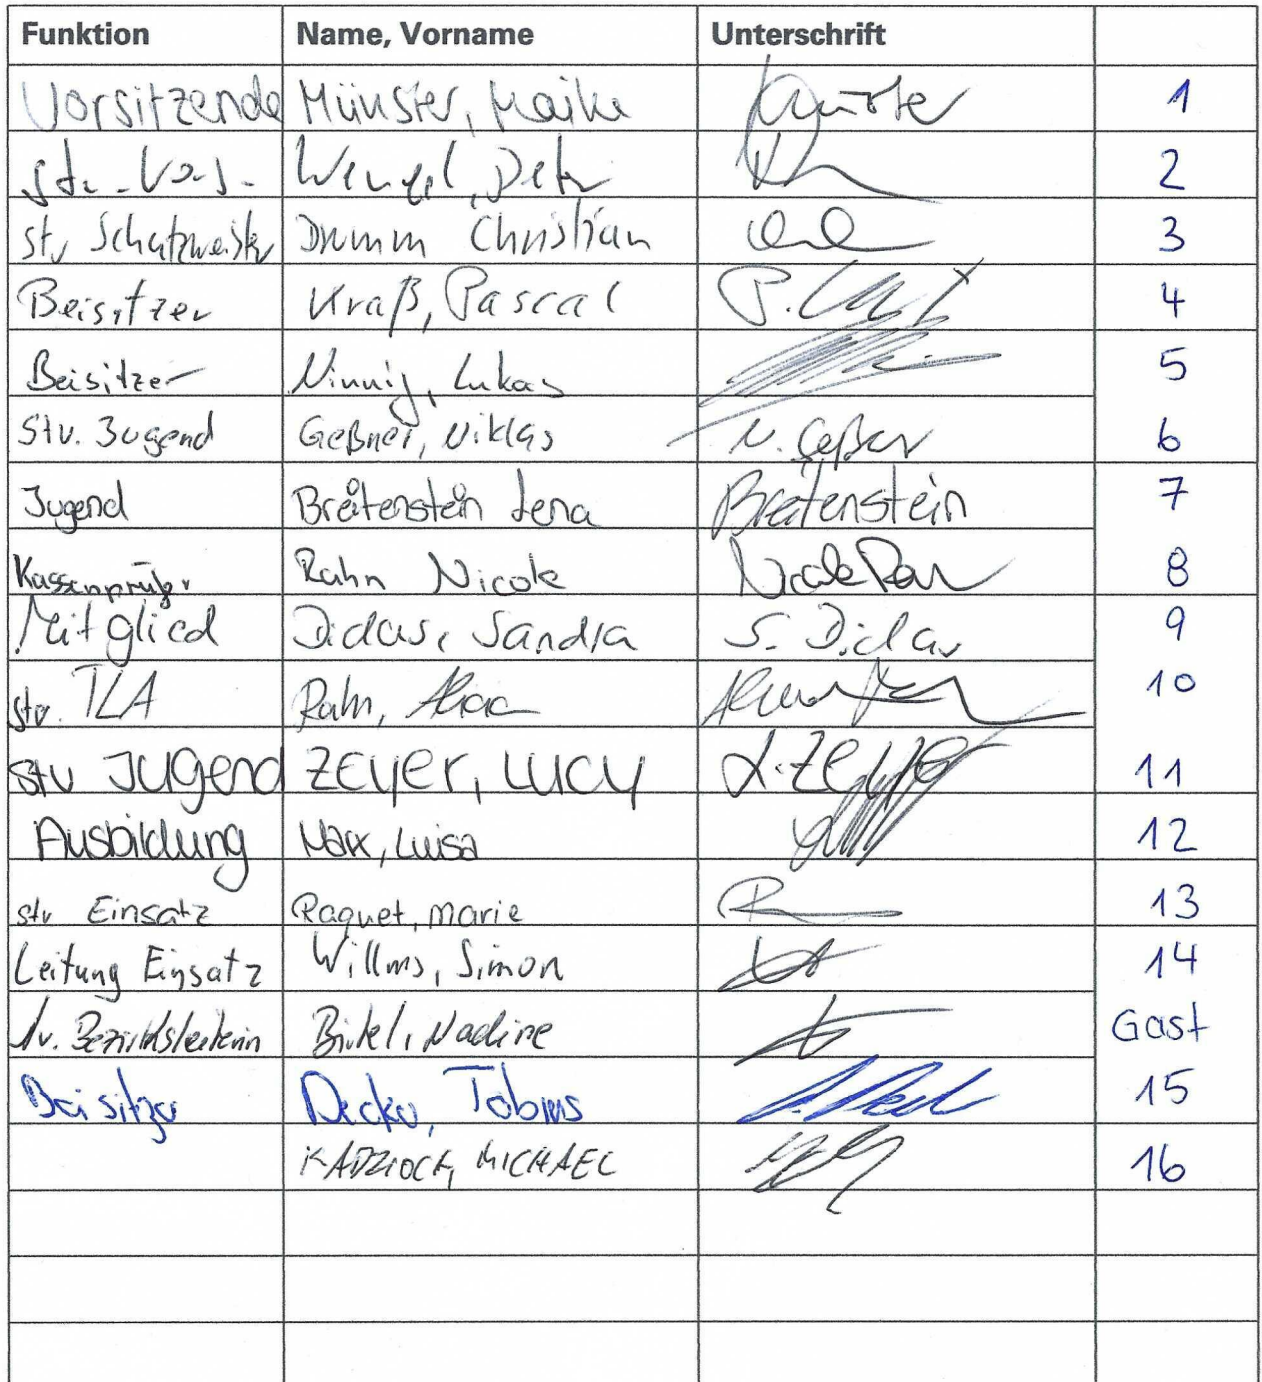 Funktion Name, Vorname Unterschrift
Vorsitzende Münster, Maike Münster 1
stv. Vors. Wenzel, Peter 2
stv Schatzmeister Dumm Christian 3
Beisitzer Kraß, Pascal 4
Beisitzer Ninnig, Lukas 5
Stv. Jugend Geßner, Niklas N. Geßner 6
Jugend Breitenstein Lena Breitenstein 7
Kassenprüfer Rahn Nicole Nicole Rahn 8
Mitglied Didas, Sandra S. Didas 9
stv. TLA Rahn, 10
stv Jugend Zeyer, Lucy L. Zeyer 11
Ausbildung Marx, Luisa 12
stv Einsatz Raquet, Marie 13
Leitung Einsatz Willms, Simon 14
stv. Bezirksleiterin Birkel, Nadine Gast
Beisitzer Decker, Tobias 15
KADZIOCH, MICHAEL 16